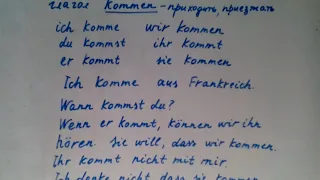 глагол kommen - приходить, приезжать
ich komme wir kommen
du kommst ihr kommt
er kommt sie kommen
Ich komme aus Frankreich.
Wann kommst du?
Wenn er kommt, können wir ihn
hören. sie will, dass wir kommen.
Ihr kommt nicht mit mir.
Ich denke nicht dass sie kommen